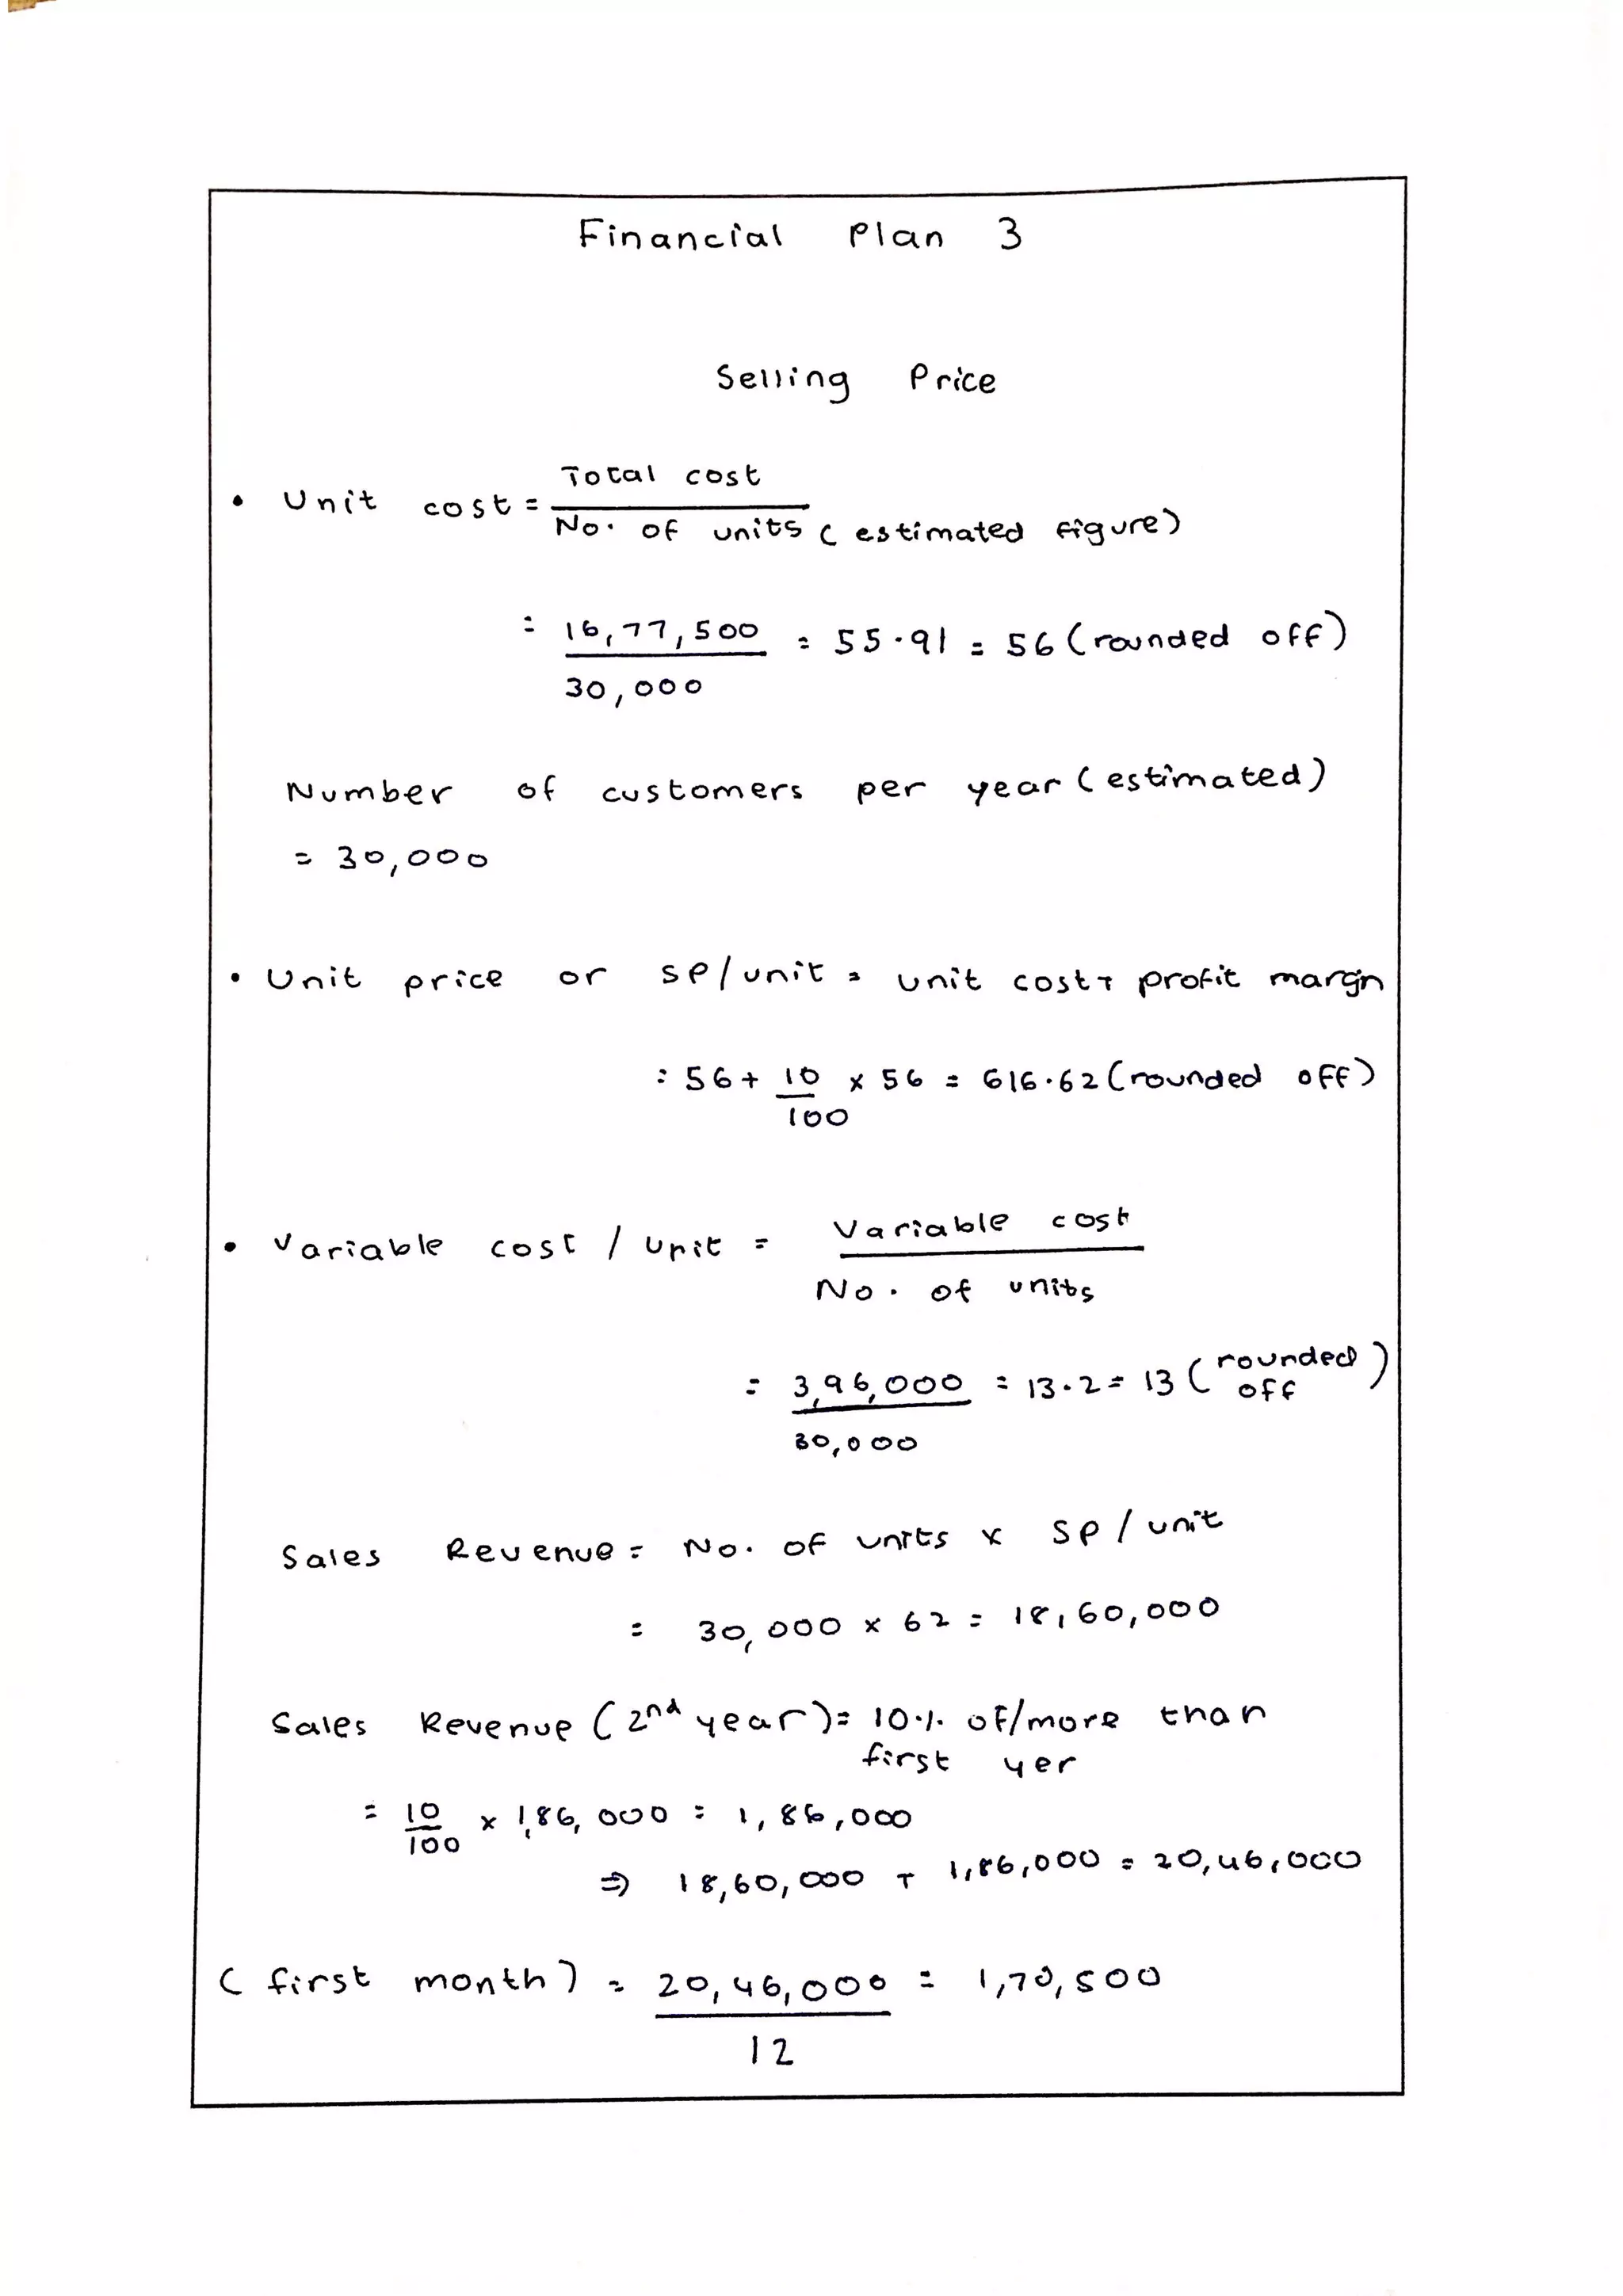 Financial Plan 3
Selling Price
• Unit cost = Total cost
No. of units (estimated figure)
= 16,77,500 = 55.91 = 56 (rounded off)
30,000
Number of customers per year (estimated)
= 30,000
• Unit price or SP/unit = unit cost + profit margin
= 56 + 10 x 56 = 616.62 (rounded off)
100
• Variable cost / Unit = Variable cost
No. of units
= 3,96,000 = 13.2 = 13 (rounded off)
30,000
Sales Revenue = No. of units x SP / unit
= 30,000 x 62 = 18,60,000
Sales Revenue (2nd year) = 10% of/more than
first yer
= 10 x 1,86,000 = 1,86,000
100
⇒ 18,60,000 + 1,86,000 = 20,46,000
(first month) = 20,46,000 = 1,70,500
12